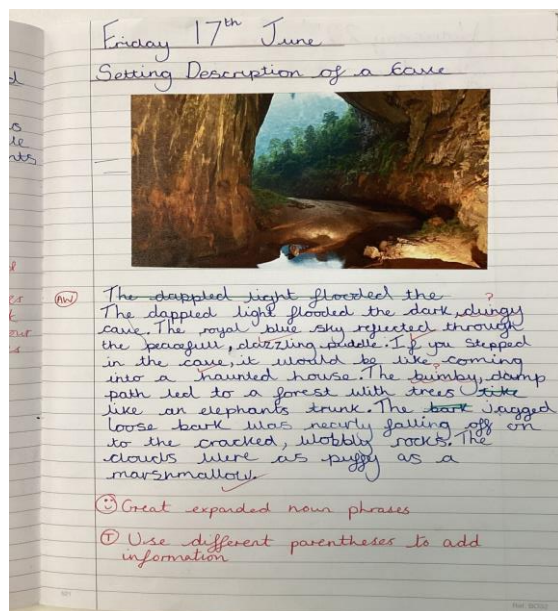 Friday 17th June
Setting Description of a Cave
AW
The dappled light flooded the
?
The dappled light flooded the dark, dungy
cave. The royal blue sky reflected through
the peacefull, dazzling puddle. If you stepped
in the cave, it would be like coming
?
into a haunted house. The bumby, damp
path led to a forest with trees like
like an elephants trunk. The bark jagged
loose bark was nearly falling off on
to the cracked, wobbly rocks. The
clouds were as puffy as a
marshmallow.
Great expanded noun phrases
T Use different parentheses to add
information